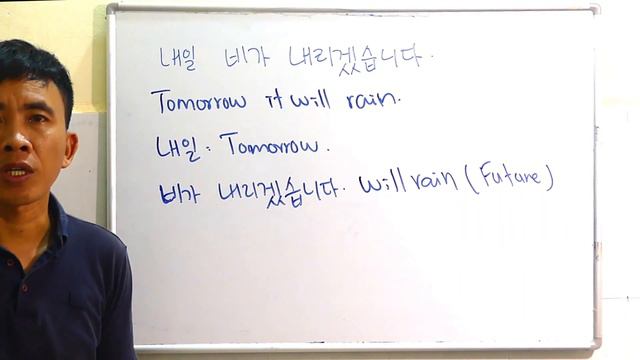 내일 비가 내리겠습니다.
Tomorrow it will rain.
내일 : Tomorrow.
비가 내리겠습니다. will rain (Future)